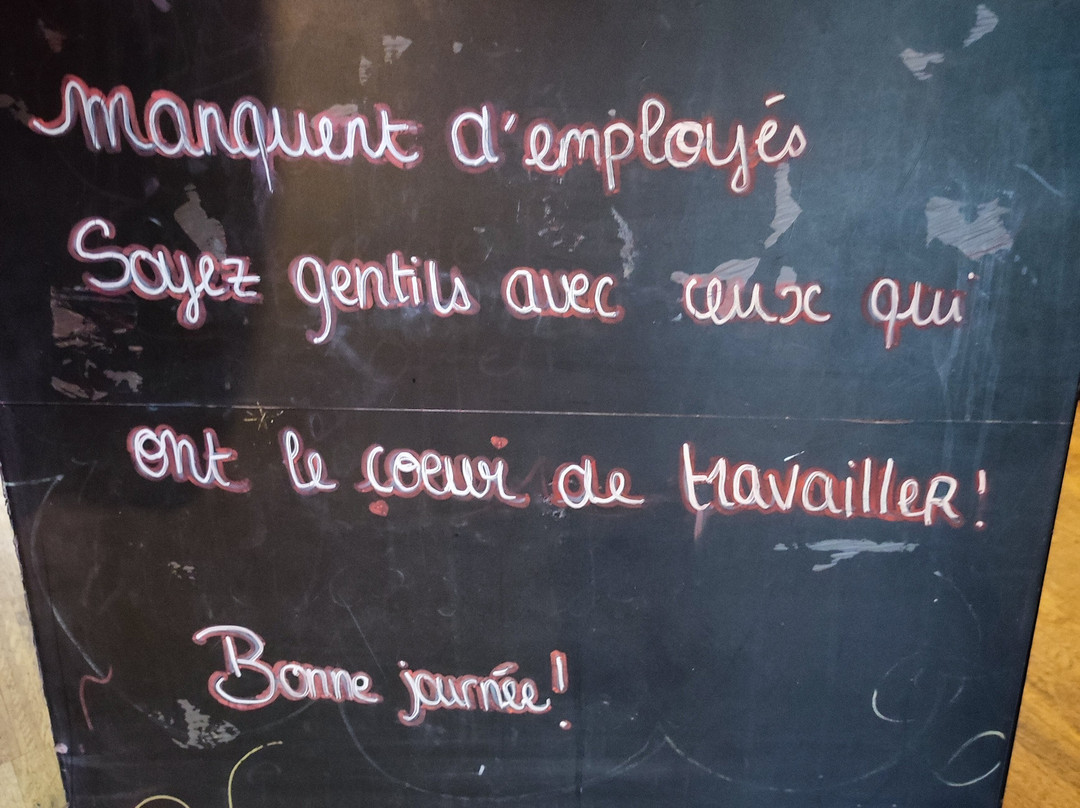 manquent d'employés
Soyez gentils avec ceux qui
ont le coeur de travailler!
Bonne journée!